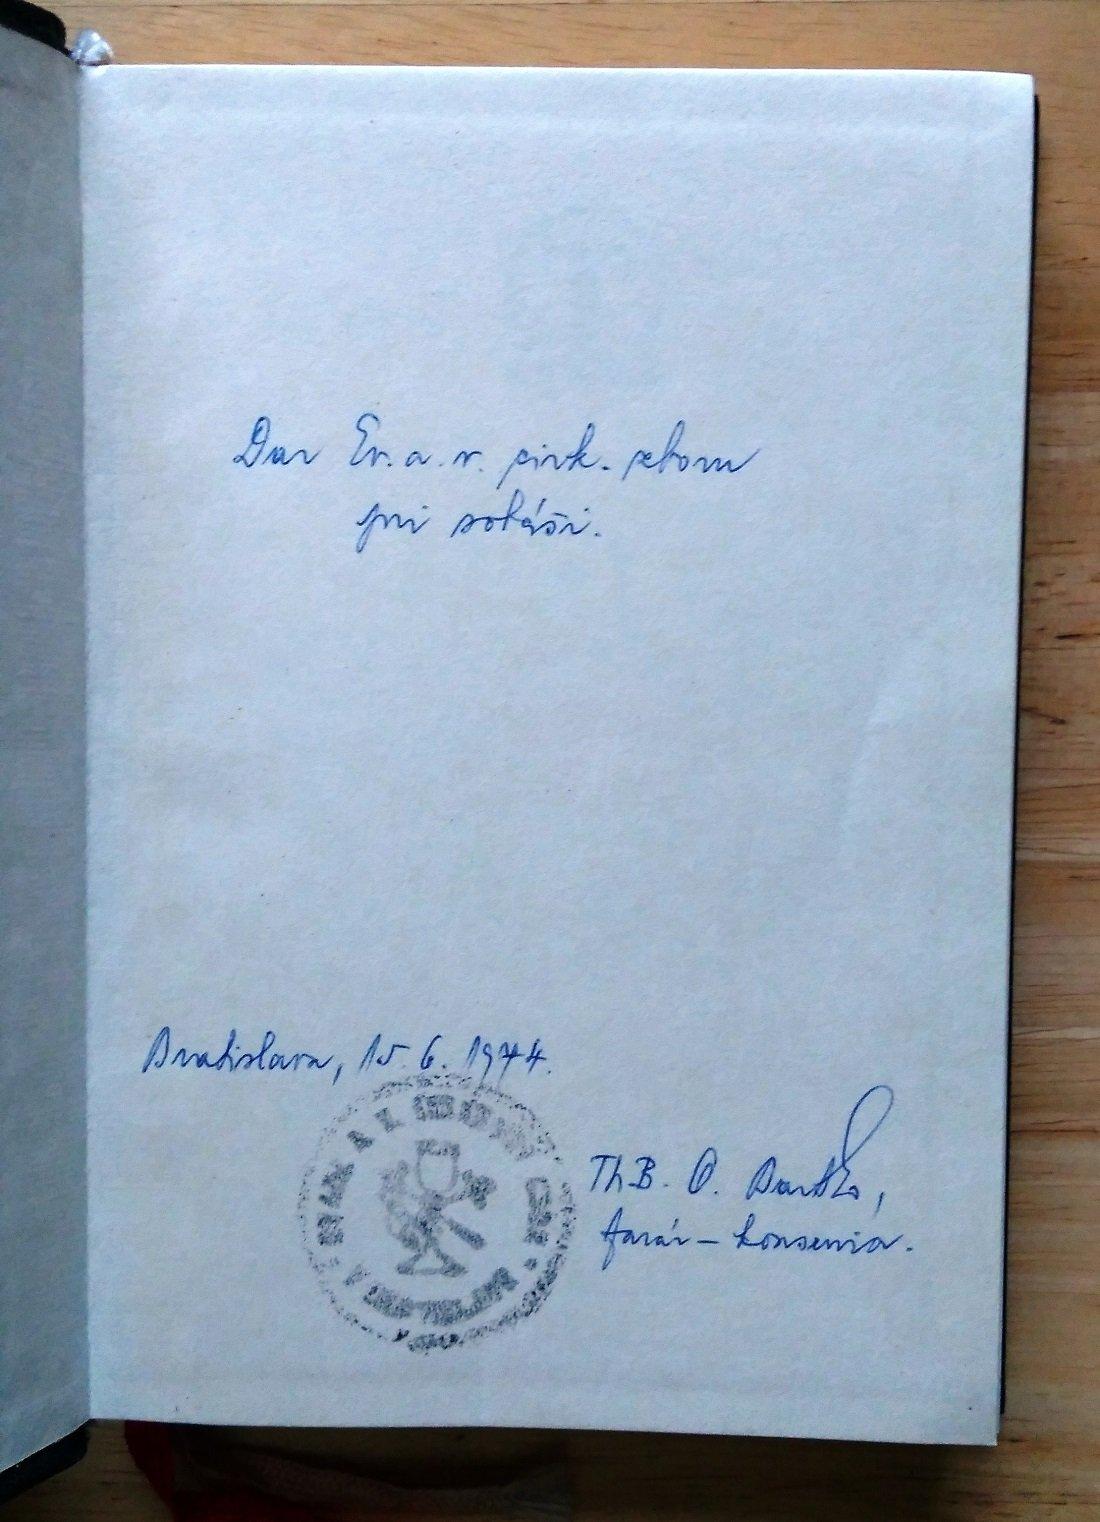 Dar Ev. a. v. cirk. sboru
pri sobáši.
Bratislava, 15. 6. 1974.
ThB. O. Bartko,
farár - konsenior.